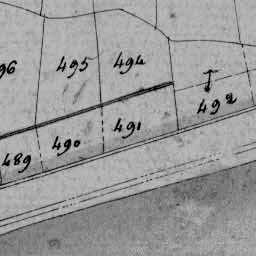 495
494
492
491
490
489